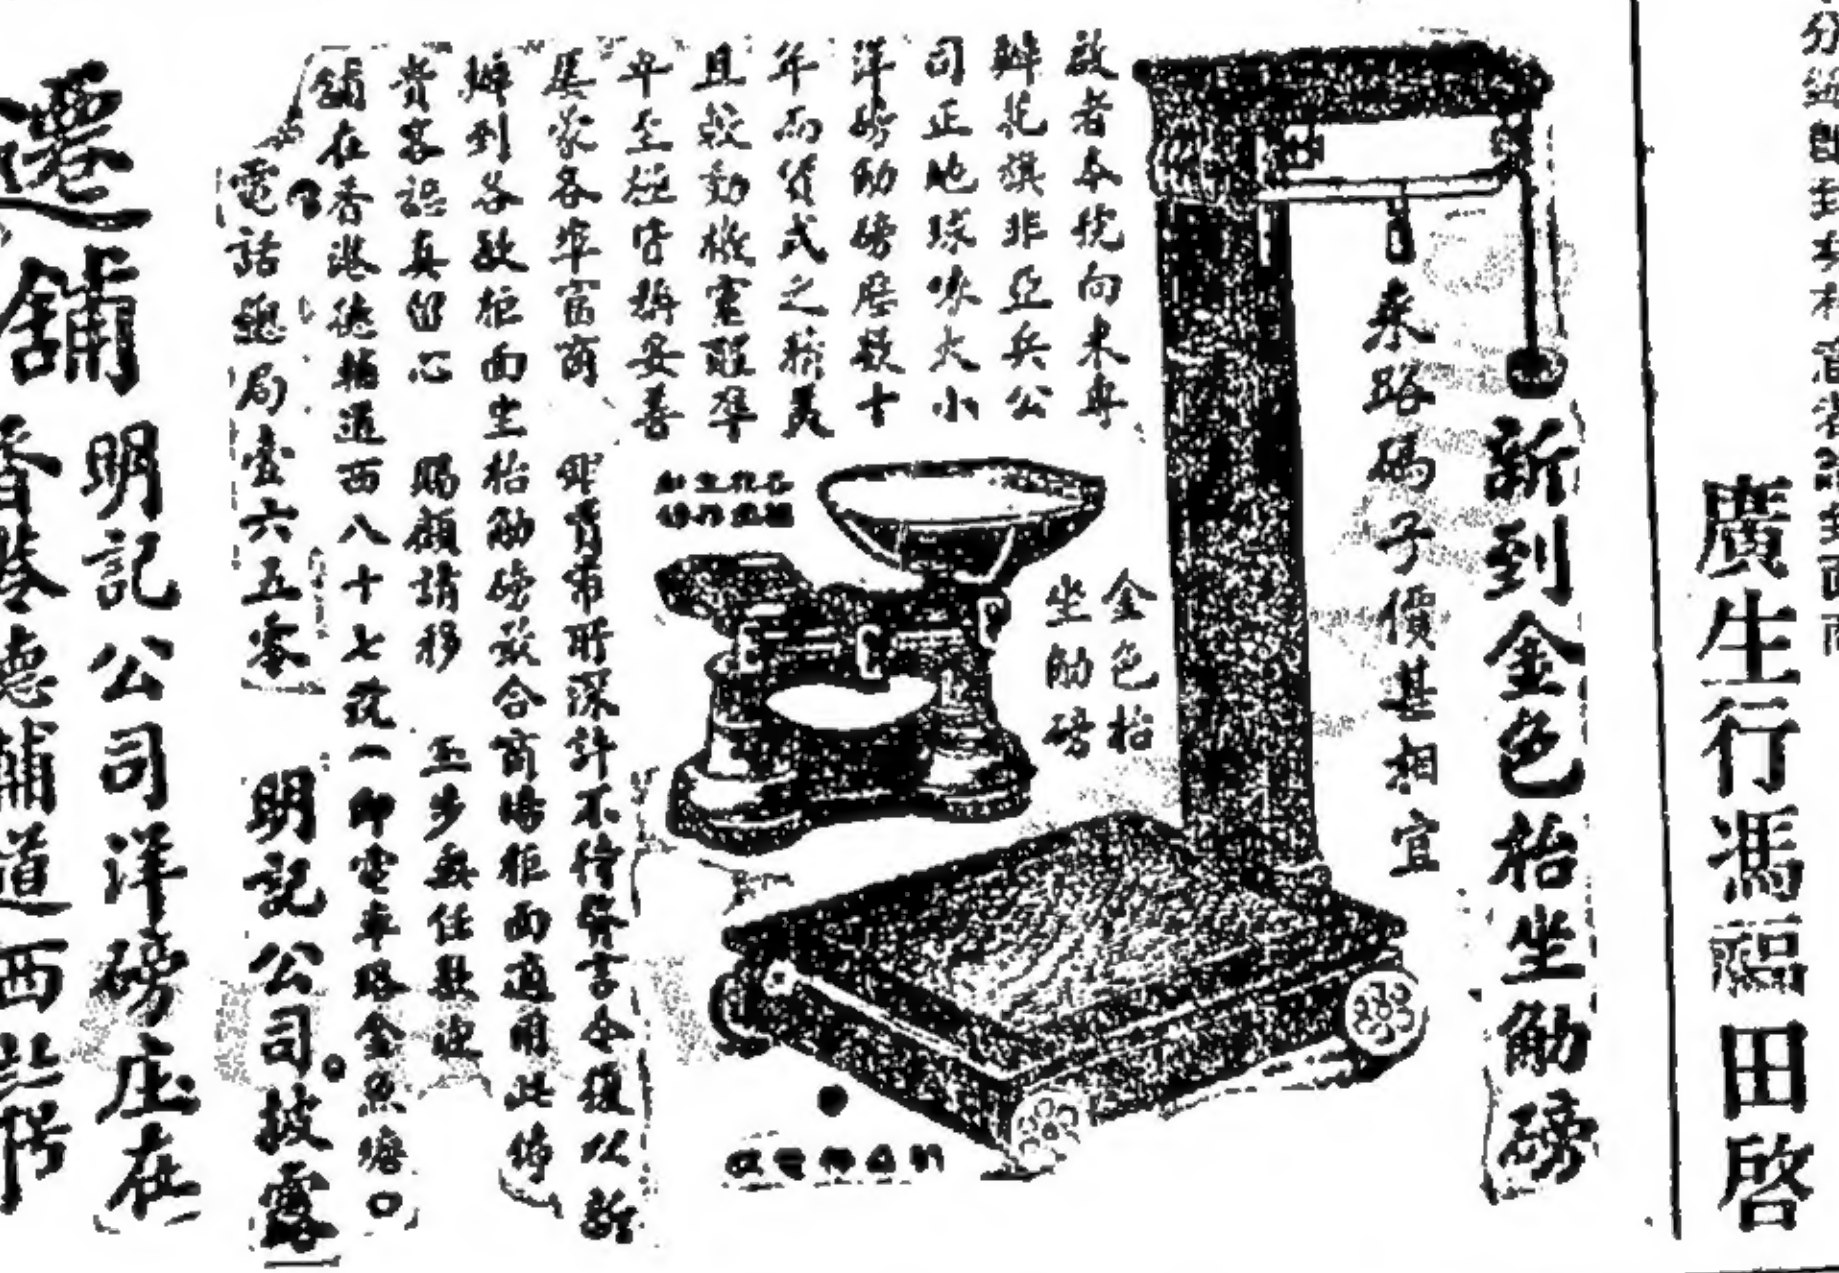 廣生行馮福田啓
新到金色枱坐觔磅
來路碼子價甚相宜
金色枱
坐觔磅
啟者本號向來專
辦花旗非亞兵公
司正地球嘜大小
洋磅觔磅歷数十
年而貨式之精美
且較動機靈醒準
卑至極皆稱妥善
屢蒙各埠富商
所深許不待贅言今復以新
辦到各款柜面坐枱觔磅款合商塲柜面適用此佈
貴客認真留心
賜顧請移
玉步無任歡迎
舖在香港德輔道西八十七號(即電車路金魚塘口)
電話總局壹六五零
明記公司披露
遷舖
明記公司洋磅庄在
香港德輔道西